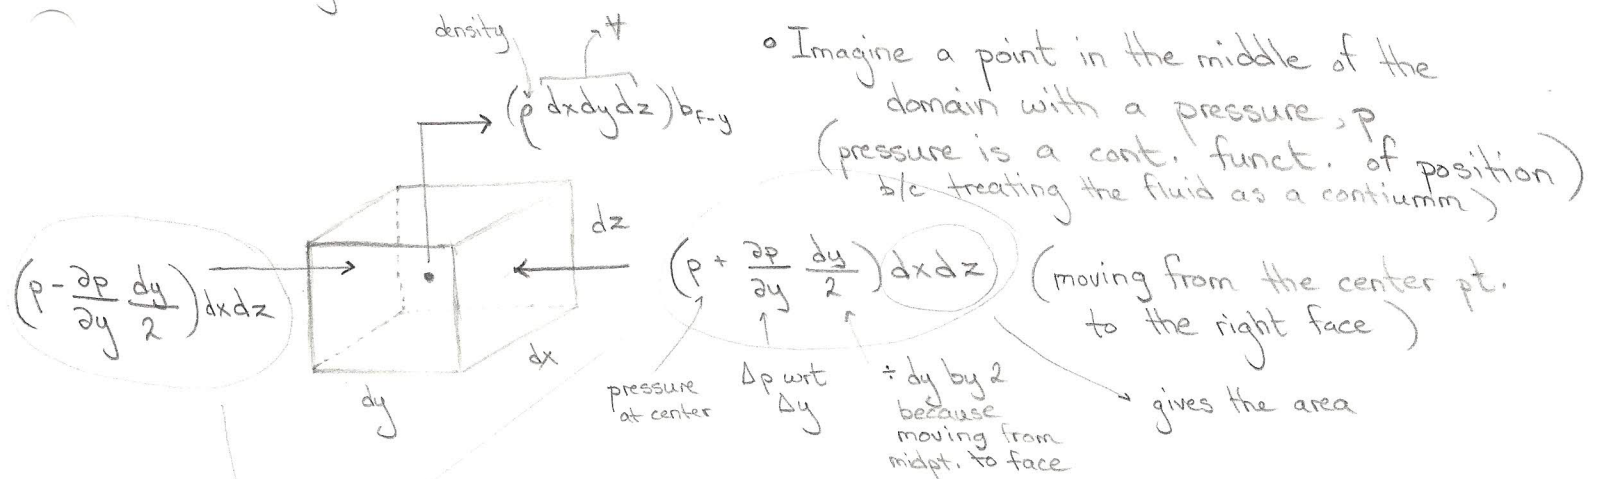 density
V
(ρ dxdydz) b_F-y
• Imagine a point in the middle of the
domain with a pressure, p
(pressure is a cont. funct. of position)
b/c treating the fluid as a contiumm)
dz
(p - ∂p/∂y dy/2) dxdz
(p + ∂p/∂y dy/2) dxdz
(moving from the center pt.
to the right face)
dx
dy
pressure
at center
Δp wrt
Δy
÷ dy by 2
because
moving from
midpt. to face
gives the area